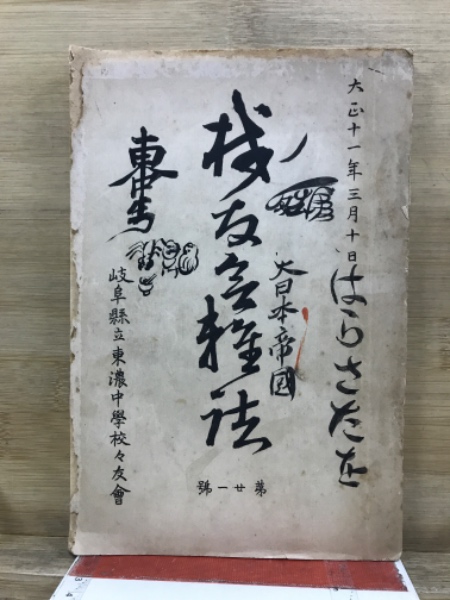 大正十一年三月十日
はらさだを
大日本帝國
校友会雑誌
第廿一號
岐阜縣立東濃中學校々友會